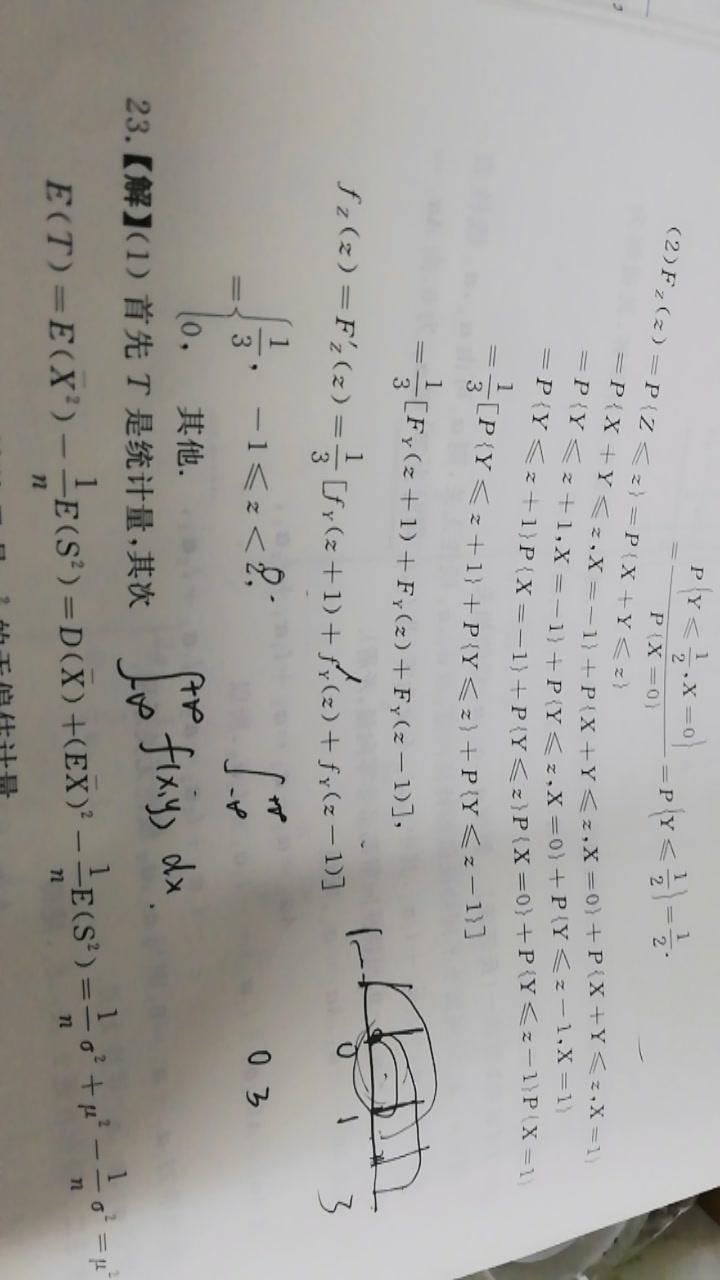 P{Y ⩽ 1/2, X = 0} / P{X = 0} = P{Y ⩽ 1/2} = 1/2.
(2) F_Z(z) = P{Z ⩽ z} = P{X + Y ⩽ z}
= P{X + Y ⩽ z, X = −1} + P{X + Y ⩽ z, X = 0} + P{X + Y ⩽ z, X = 1}
= P{Y ⩽ z + 1, X = −1} + P{Y ⩽ z, X = 0} + P{Y ⩽ z − 1, X = 1}
= P{Y ⩽ z + 1}P{X = −1} + P{Y ⩽ z}P{X = 0} + P{Y ⩽ z − 1}P{X = 1}
= 1/3 [P{Y ⩽ z + 1} + P{Y ⩽ z} + P{Y ⩽ z − 1}]
= 1/3 [F_Y(z + 1) + F_Y(z) + F_Y(z − 1)],
f_Z(z) = F′_Z(z) = 1/3 [f_Y(z + 1) + f_Y(z) + f_Y(z − 1)]
0 1 3
= { 1/3, −1 ⩽ z < 2,
0, 其他.
∫_{-∞}^{+∞}
0 3
∫_{-∞}^{+∞} f(x,y) dx.
23.【解】(1) 首先 T 是统计量,其次
E(T) = E(X̄²) − 1/n E(S²) = D(X̄) + (EX̄)² − 1/n E(S²) = 1/n σ² + μ² − 1/n σ² = μ²
的无偏估计量